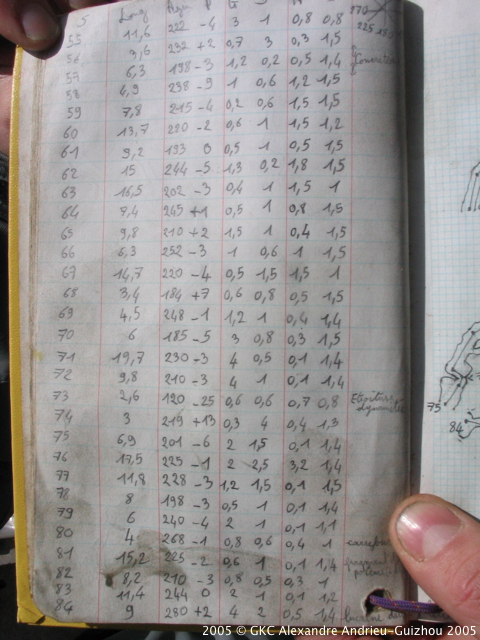 S Long
55 11,6 222 -4 3 1 0,8 0,8
56 3,6 232 +2 0,7 3 0,3 1,5
57 6,3 198 -3 1,2 0,2 0,5 1,4
58 6,9 238 -9 1 0,6 1,2 1,5
59 7,8 215 -4 0,2 0,6 1,5 1,5
60 13,7 220 -2 0,6 1 1,5 1,2
61 9,2 193 0 0,5 1 0,5 1,5
62 15 244 -5 1,3 0,2 1,8 1,5
63 16,5 202 -3 0,4 1 1,5 1
64 7,4 245 +1 0,5 1 0,8 1,5
65 9,8 210 +2 1,5 1 0,4 1,5
66 6,3 252 -3 1 0,6 1 1,5
67 14,7 220 -4 0,5 1,5 1,5 1
68 3,4 184 +7 0,6 0,8 0,5 1,5
69 4,5 248 -1 1,2 1 0,4 1,4
70 6 185 -5 3 0,8 0,3 1,5
71 19,7 230 -3 4 0,5 0,1 1,4
72 9,8 210 -3 4 1 0,1 1,4
73 2,6 120 -25 0,6 0,6 0,7 0,8
74 3 219 +13 0,3 4 0,4 1,3
75 6,9 201 -6 2 1,5 0,1 1,4
76 17,5 225 -1 2 2,5 3,2 1,4
77 11,8 228 -3 1,2 1,5 0,1 1,5
78 8 198 -3 0,5 1 0,1 1,4
79 6 240 -4 2 1 0,1 1,1
80 4 268 -1 0,8 0,6 0,4 1
81 15,2 225 -2 0,6 1 0,1 1,4
82 8,2 210 -3 0,8 0,5 0,3 1
83 11,4 244 0 2 1 0,1 1,2
84 9 280 +2 4 2 0,5 1,4
75
84
2005 © GKC Alexandre Andrieu-Guizhou 2005 ©